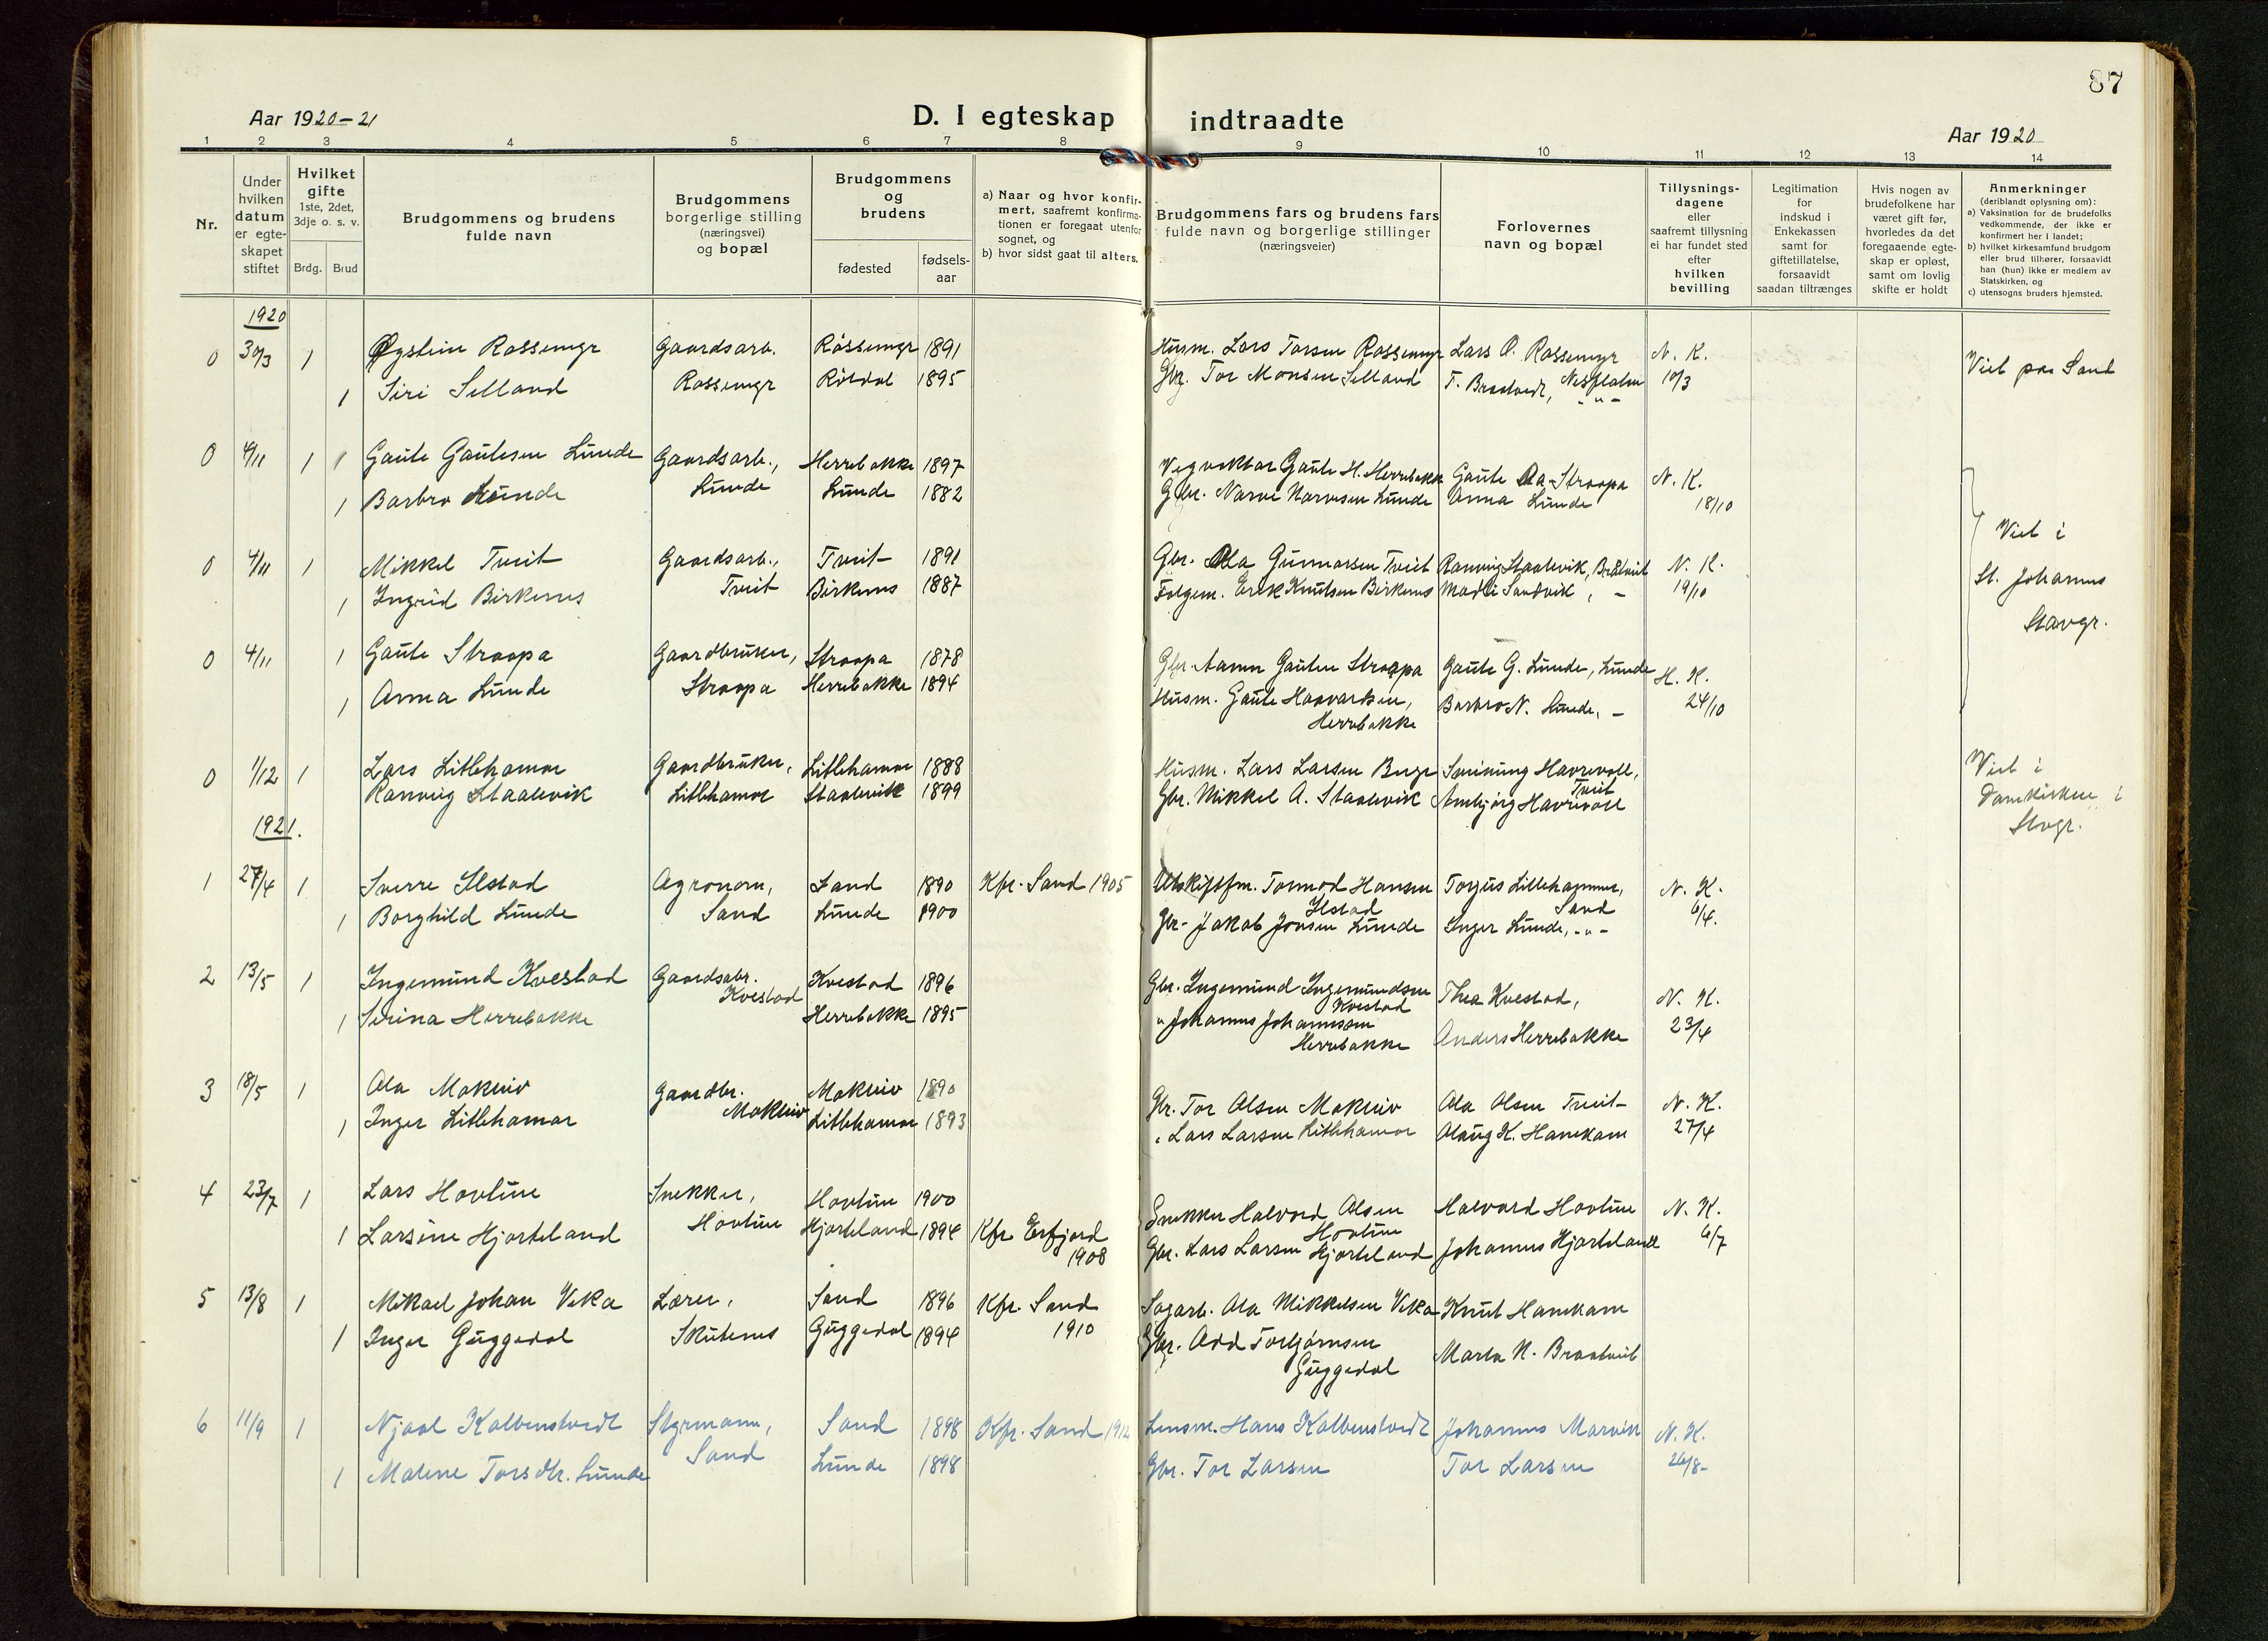 87
Aar 1920-21
D. I egteskap indtraadte
Aar 1920
1 2 3 4 5 6 7 8 9 10 11 12 13 14
Nr.
Under hvilken datum er egte-skapet stiftet
Hvilket gifte 1ste, 2det, 3dje o. s. v.
Brdg. Brud
Brudgommens og brudens fulde navn
Brudgommens borgerlige stilling (næringsvei) og bopæl
Brudgommens og brudens
fødested
fødsels-aar
a) Naar og hvor konfir-mert, saafremt konfirma-tionen er foregaat utenfor sognet, og
b) hvor sidst gaat til alters.
Brudgommens fars og brudens fars fulde navn og borgerlige stillinger (næringsveier)
Forlovernes navn og bopæl
Tillysnings-dagene eller saafremt tillysning ei har fundet sted efter hvilken bevilling
Legitimation for indskud i Enkekassen samt for giftetillatelse, forsaavidt saadan tiltrænges
Hvis nogen av brudefolkene har været gift før, hvorledes da det foregaaende egte-skap er opløst, samt om lovlig skifte er holdt
Anmerkninger (deriblandt oplysning om):
a) Vaksination for de brudefolks vedkommende, der ikke er konfirmert her i landet;
b) hvilket kirkesamfund brudgom eller brud tilhører, forsaavidt han (hun) ikke er medlem av Statskirken, og
c) utensogns bruders hjemsted.
1920
0 30/3 1 Øystein Rossemyr Gaardsarb. Rossemyr 1891 Husm. Lars Torsen Rossemyr Lars O. Rossemyr N. K. Viet paa Sand
1 Siri Selland Rossemyr Röldal 1895 Gbr. Tor Monsen Selland T. Bratveit, Nesflaten -"- 10/3
0 4/11 1 Gaute Gautesen Lunde Gaardsarb., Herrebakke 1897 Vegvokter Gaute H. Herrebakke Gaute Aa. Straapa N. K.
1 Barbro Lunde Lunde Lunde 1882 Gbr. Narve Narvesen Lunde Anna Lunde 18/10
0 4/11 1 Mikkel Tveit Gaardsarb., Tveit 1891 Gbr. Ola Gunnarsen Tveit Ranveig Staalevik, Bratveit N. K. Viet i
1 Ingrid Birkenes Tveit Birkenes 1887 Folgem. Erik Knutsen Birkenes Madli Sandvik, - 19/10 St. Johannes Stavgr.
0 4/11 1 Gaute Straapa Gaardbruker, Straapa 1878 Gbr. Aamun Gautsen Straapa Gaute G. Lunde, Lunde H. K.
1 Anna Lunde Straapa Herrebakke 1894 Husm. Gaute Haavardsen, Herrebakke Barbro N. Lunde, - 24/10
0 1/12 1 Lars Litlehamar Gaardbruker, Litlehamar 1888 Husm. Lars Larsen Berge Sveinung Havrevoll, Tveit Viet i
Ranveig Staalevik Litlehamar Staalevik 1899 Gbr. Mikkel A. Staalevik Havrevoll Domkirken i Stvgr.
1921.
1 27/4 1 Sverre Ilstad Agronom, Sand 1890 Kfr. Sand 1905 Utskiftfm. Tormod Hansen Ilstad Torjus Lillehammer, Sand N. K.
1 Borghild Lunde Sand Lunde 1900 Gbr. Jakob Jonsen Lunde Inger Lunde, -"- 6/4.
2 13/5 1 Ingemund Kvestad Gaardsabr. Kvestad Kvestad 1896 Gbr. Ingemund Ingemundsen Kvestad Thea Kvestad, N. K.
1 Serina Herrebakke Herrebakke 1895 " Johannes Johannesen Herrebakke Anders Herrebakke 23/4
3 18/5 1 Ola Mokleiv Gaardbr. Mokleiv Mokleiv 1890 Gbr. Tor Olsen Mokleiv Ola Olsen Tveit N. K.
1 Inger Litlehamar Litlehamar 1893 " Lars Larsen Litlehamar Olaug K. Hanekam 27/4
4 23/7 1 Lars Hovtun Snekker, Hovtun 1900 Snekker Halvard Olsen Hovtun Halvard Hovtun N. K.
1 Larsine Hjorteland Hovtun Hjorteland 1894 Kfr. Erfjord 1908 Gbr. Lars Larsen Hjorteland Johannes Hjorteland 6/7
5 13/8 1 Mikael Johan Veka Lærer, Sand 1896 Kfr. Sand 1910 Sagarb. Ola Mikkelsen Veka Knut Hanekam
1 Inger Guggedal Skutenes Guggedal 1894 Gbr. Odd Torbjørnsen Guggedal Marta N. Bratveit
6 11/9 1 Njaal Kolbenstvedt Styrmann, Sand 1898 Kfr. Sand 1912 Lensm. Hans Kolbenstvedt Johannes Marvik N. K.
1 Malene Torsdtr. Lunde Sand Lunde 1898 Gbr. Tor Larsen Tor Larsen 26/8-